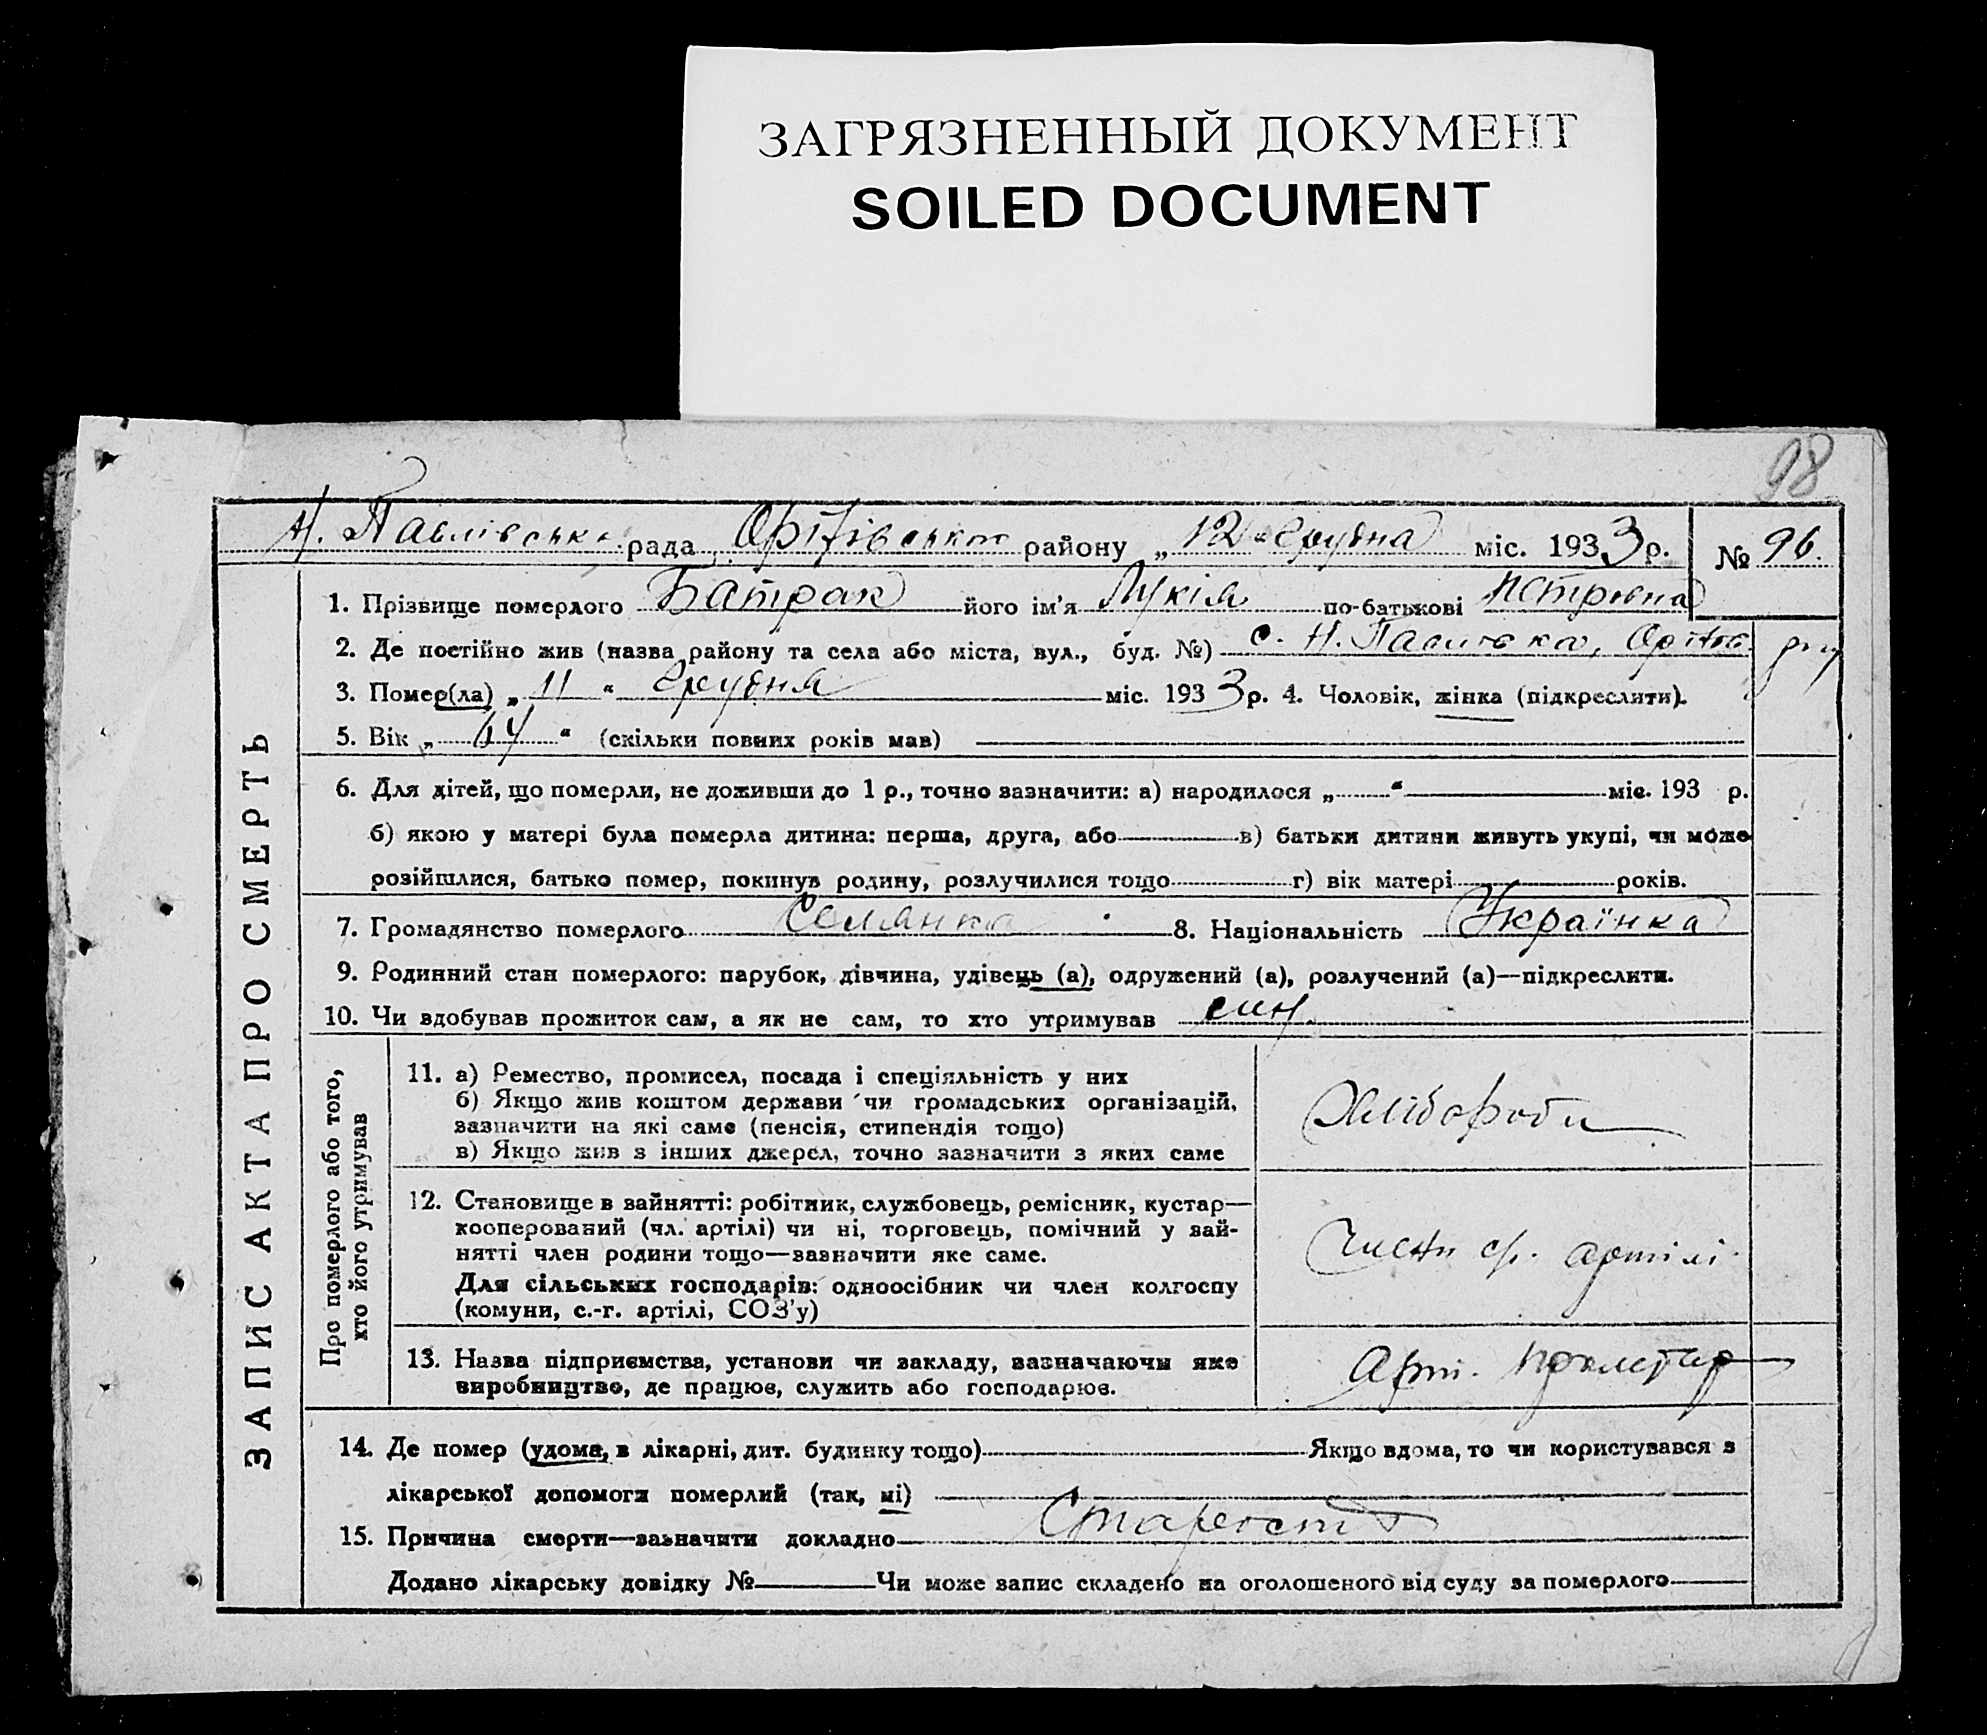 ЗАГРЯЗНЕННЫЙ ДОКУМЕНТ
SOILED DOCUMENT
98
Н. Павлівська рада Оріхівського району „12“ Грудня міс. 1933 р. № 96.
ЗАПИС АКТА ПРО СМЕРТЬ
1. Прізвище померлого Батрак його ім'я Лукія по-батькові Петровна
2. Де постійно жив (назва району та села або міста, вул., буд. №) с. Н. Павлівка, Оріхів.
3. Помер(ла) „11“ Грудня міс. 1933 р. 4. Чоловік, жінка (підкреслити).
5. Вік „64“ (скільки повних років мав)
6. Для дітей, що померли, не доживши до 1 р., точно зазначити: а) народилося „ “ міс. 193 р.
б) якою у матері була померла дитина: перша, друга, або в) батьки дитини живуть укупі, чи може
розійшлися, батько помер, покинув родину, розлучилися тощо г) вік матері років.
7. Громадянство померлого Селянка 8. Національність Українка
9. Родинний стан померлого: парубок, дівчина, удівець (а), одружений (а), розлучений (а)—підкреслити.
10. Чи здобував прожиток сам, а як не сам, то хто утримував син.
Про померлого або того,
хто його утримував
11. а) Ремество, промисел, посада і спеціяльність у них
б) Якщо жив коштом держави чи громадських організацій,
зазначити на які саме (пенсія, стипендія тощо)
в) Якщо жив з інших джерел, точно зазначити з яких саме
Хлібороби
12. Становище в зайнятті: робітник, службовець, ремісник, кустар—
кооперований (чл. артілі) чи ні, торговець, помічний у зай-
нятті член родини тощо—зазначити яке саме.
Для сільських господарів: одноосібник чи член колгоспу
(комуни, с.-г. артілі, СОЗ'у)
артілі
13. Назва підприємства, установи чи закладу, зазначаючи яке
виробництво, де працює, служить або господарює.
Арт. Пролетар
14. Де помер (удома, в лікарні, дит. будинку тощо) Якщо вдома, то чи користувався з
лікарської допомоги померлий (так, ні)
15. Причина смерти—зазначити докладно Старость
Додано лікарську довідку № Чи може запис складено на оголошеного від суду за померлого